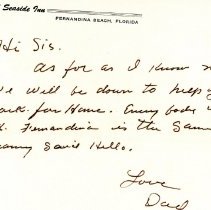 Seaside Inn
FERNANDINA BEACH, FLORIDA
Hi Sis.
As far as I know
we will be down to help
for Home. Every body
Fernandina is the Same
Granny Said Hello.
Love
Dad